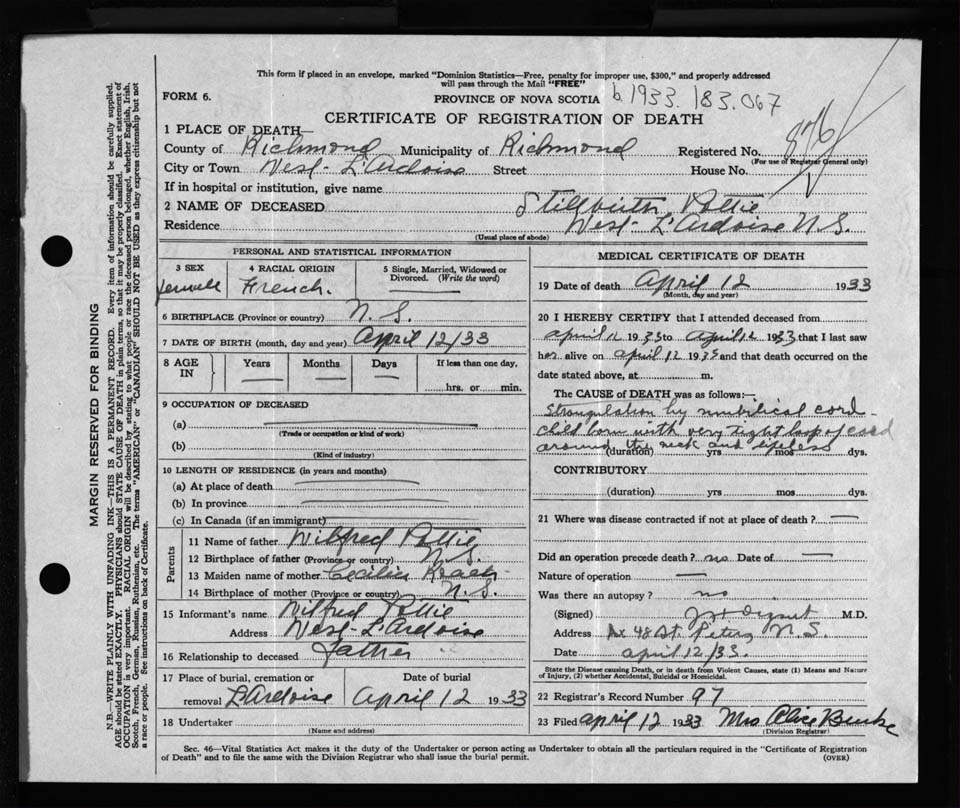 This form if placed in an envelope, marked "Dominion Statistics—Free, penalty for improper use, $300," and properly addressed
will pass through the Mail "FREE"
FORM 6.
PROVINCE OF NOVA SCOTIA
b 1933. 183.067
CERTIFICATE OF REGISTRATION OF DEATH
1 PLACE OF DEATH—
County of Richmond Municipality of Richmond Registered No.
(For use of Registrar General only)
City or Town West L'Ardoise Street House No.
If in hospital or institution, give name
2 NAME OF DECEASED Stillbirth Pottie
Residence West L'Ardoise N.S.
(Usual place of abode)
PERSONAL AND STATISTICAL INFORMATION
3 SEX
4 RACIAL ORIGIN French.
5 Single, Married, Widowed or
Divorced. (Write the word)
6 BIRTHPLACE (Province or country) N.S.
7 DATE OF BIRTH (month, day and year) April 12/33
8 AGE
IN
Years
Months
Days
If less than one day,
hrs. or min.
9 OCCUPATION OF DECEASED
(a)
(Trade or occupation or kind of work)
(b)
(Kind of industry)
10 LENGTH OF RESIDENCE (in years and months)
(a) At place of death
(b) In province
(c) In Canada (if an immigrant)
Parents
11 Name of father Wilfred Pottie
12 Birthplace of father (Province or country) N.S.
13 Maiden name of mother Cecilia
14 Birthplace of mother (Province or country) N.S.
15 Informant's name Wilfred Pottie
Address West L'Ardoise
16 Relationship to deceased Father
17 Place of burial, cremation or
removal L'Ardoise
Date of burial
April 12 1933
18 Undertaker
(Name and address)
MEDICAL CERTIFICATE OF DEATH
19 Date of death April 12 1933
(Month, day and year)
20 I HEREBY CERTIFY that I attended deceased from
April 12 1933 to April 12 1933 that I last saw
her alive on April 12 1933 and that death occurred on the
date stated above, at m.
The CAUSE of DEATH was as follows:—
Strangulation by umbilical cord—
child born with very tight loop of cord
around the neck and lifeless
(duration) yrs mos dys.
CONTRIBUTORY
(duration) yrs mos dys.
21 Where was disease contracted if not at place of death? —
Did an operation precede death? no Date of —
Nature of operation —
Was there an autopsy? no
(Signed) M.D.
Address Bx 48 St. Peters N.S.
Date April 12/33.
State the Disease causing Death, or in death from Violent Causes, state (1) Means and Nature
of Injury, (2) whether Accidental, Suicidal or Homicidal.
22 Registrar's Record Number 97
23 Filed April 12 1933 Mrs Alice Burke
(Division Registrar)
Sec. 46—Vital Statistics Act makes it the duty of the Undertaker or person acting as Undertaker to obtain all the particulars required in the "Certificate of Registration
of Death" and to file the same with the Division Registrar who shall issue the burial permit.
(OVER)
MARGIN RESERVED FOR BINDING
N.B.—WRITE PLAINLY WITH UNFADING INK—THIS IS A PERMANENT RECORD. Every item of information should be carefully supplied.
AGE should be stated EXACTLY. PHYSICIANS should STATE CAUSE OF DEATH in plain terms, so that it may be properly classified. Exact statement of
OCCUPATION is very important. RACIAL ORIGIN will be described by stating to what people or race the deceased person belonged, whether English, Irish,
Scotch, French, German, Russian, Ruthenian, etc. The terms "AMERICAN" or "CANADIAN" SHOULD NOT BE USED as they express citizenship but not
a race or people. See instructions on back of Certificate.